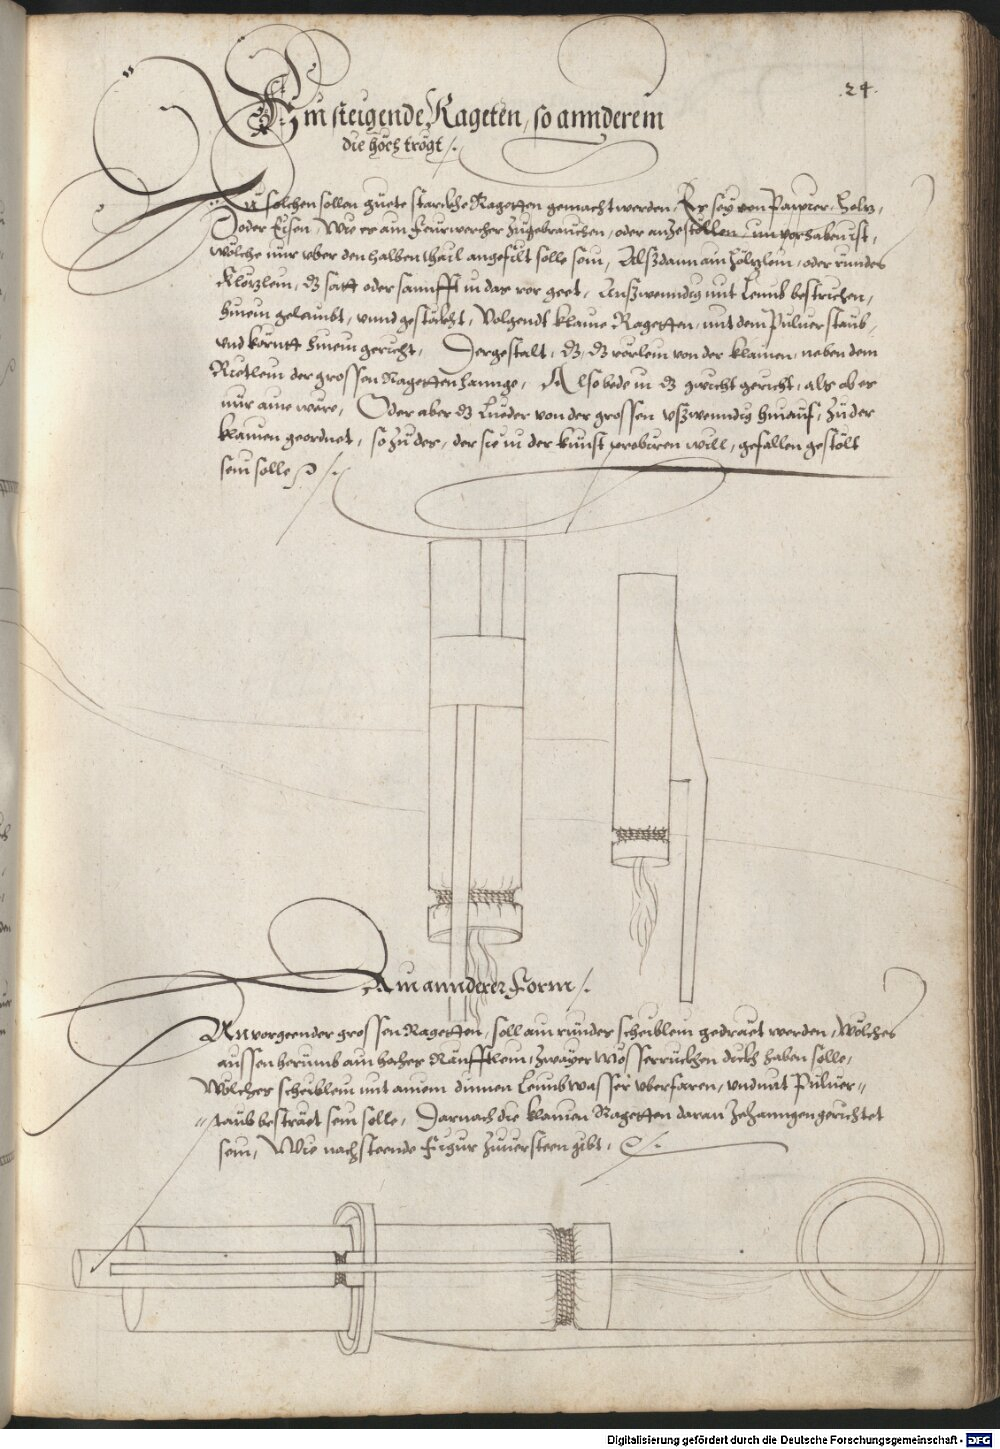 .24.
Ein steigende Rageten, so annderem
die höch trögt /.
Zu solchen sollen guete starckhe Ragetten gemacht werden, Er sey von Pappier, Holtz,
Oder Eisen, Wie er am Feurwercher zugebrauchen, oder anzestöllen, im vorhaben ist,
wölche nur uber den halben thail angefilt solle sein, Alsdann ain hölzlein, oder rundes
Klözlein, dz satt oder sannfft in das ror geet, Auszwenndig mit Leimb bestrichen,
hinein gelaimbt, unnd gestöckht, Volgends klaine Ragetten, mit dem Pulver staub,
und körntt hinein gericht, Dergestalt, dz, dz rörlein von der klainen, neben dem
Rietlein der grossen Ragetten hannge, Also bede in dz gwicht gericht, als ob er
nur aine were, Oder aber dz Lueder von der grossen uszwenndig hinauf, zu der
klainen geordnet, so zu der, der sie in der kunst probieren will, gefallen gestölt
sein solle /.
Ain annderer Form /.
An vorgeender grossen Ragetten, soll ain runder scheiblein gedraet werden, Wölches
aussen herumb ain hohes Ränfftlein, zwayer Mösserrucken dickh haben solle,
Wölches scheiblein mit ainem dinnen Leimbwasser uberfaren, und mit Pulver=
=staub besträet sein solle, Darnach die klainen Ragetten daran zehanngen gerichtet
sein, Wie nachsteende Figur zuversteen gibt. /.
Digitalisierung gefördert durch die Deutsche Forschungsgemeinschaft - DFG